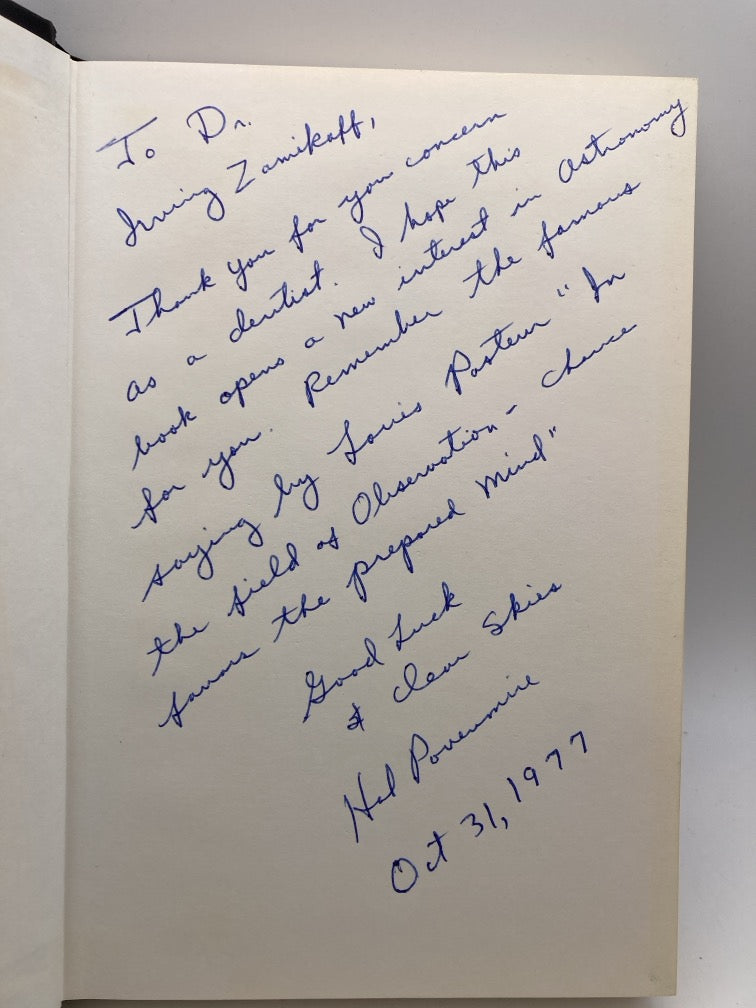 To Dr.
Irving Zamikoff,
Thank you for you concern
as a dentist. I hope this
book opens a new interest in astronomy
for you. Remember the famous
saying by Louis Pasteur "In
the field of Observation - chance
favors the prepared mind"
Good Luck
& clear skies
Hal Povenmire
Oct 31, 1977